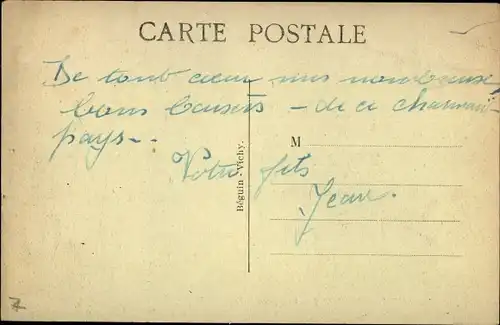 CARTE POSTALE
De tout cœur mes nombreux
bons baisers - de ce charmant
pays -
M
Votre fils
Jean.
Béguin - Vichy.